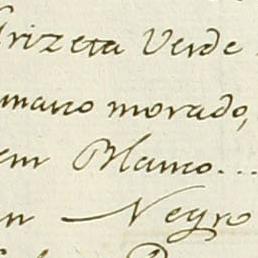 rizeta Verde
mano morado,
em Blanco...
n Negro